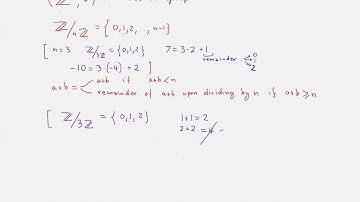 ℤ/nℤ = {0,1,2, .., n-1}
[ n=3 ℤ/3ℤ = {0,1,2} 7=3·2+1
remainder 0 1 2
-10=3·(-4)+2 ]
a+b = { a+b if a+b<n
remainder of a+b upon dividing by n if a+b≥n
[ ℤ/3ℤ = {0,1,2} 1+1=2
2+2=4